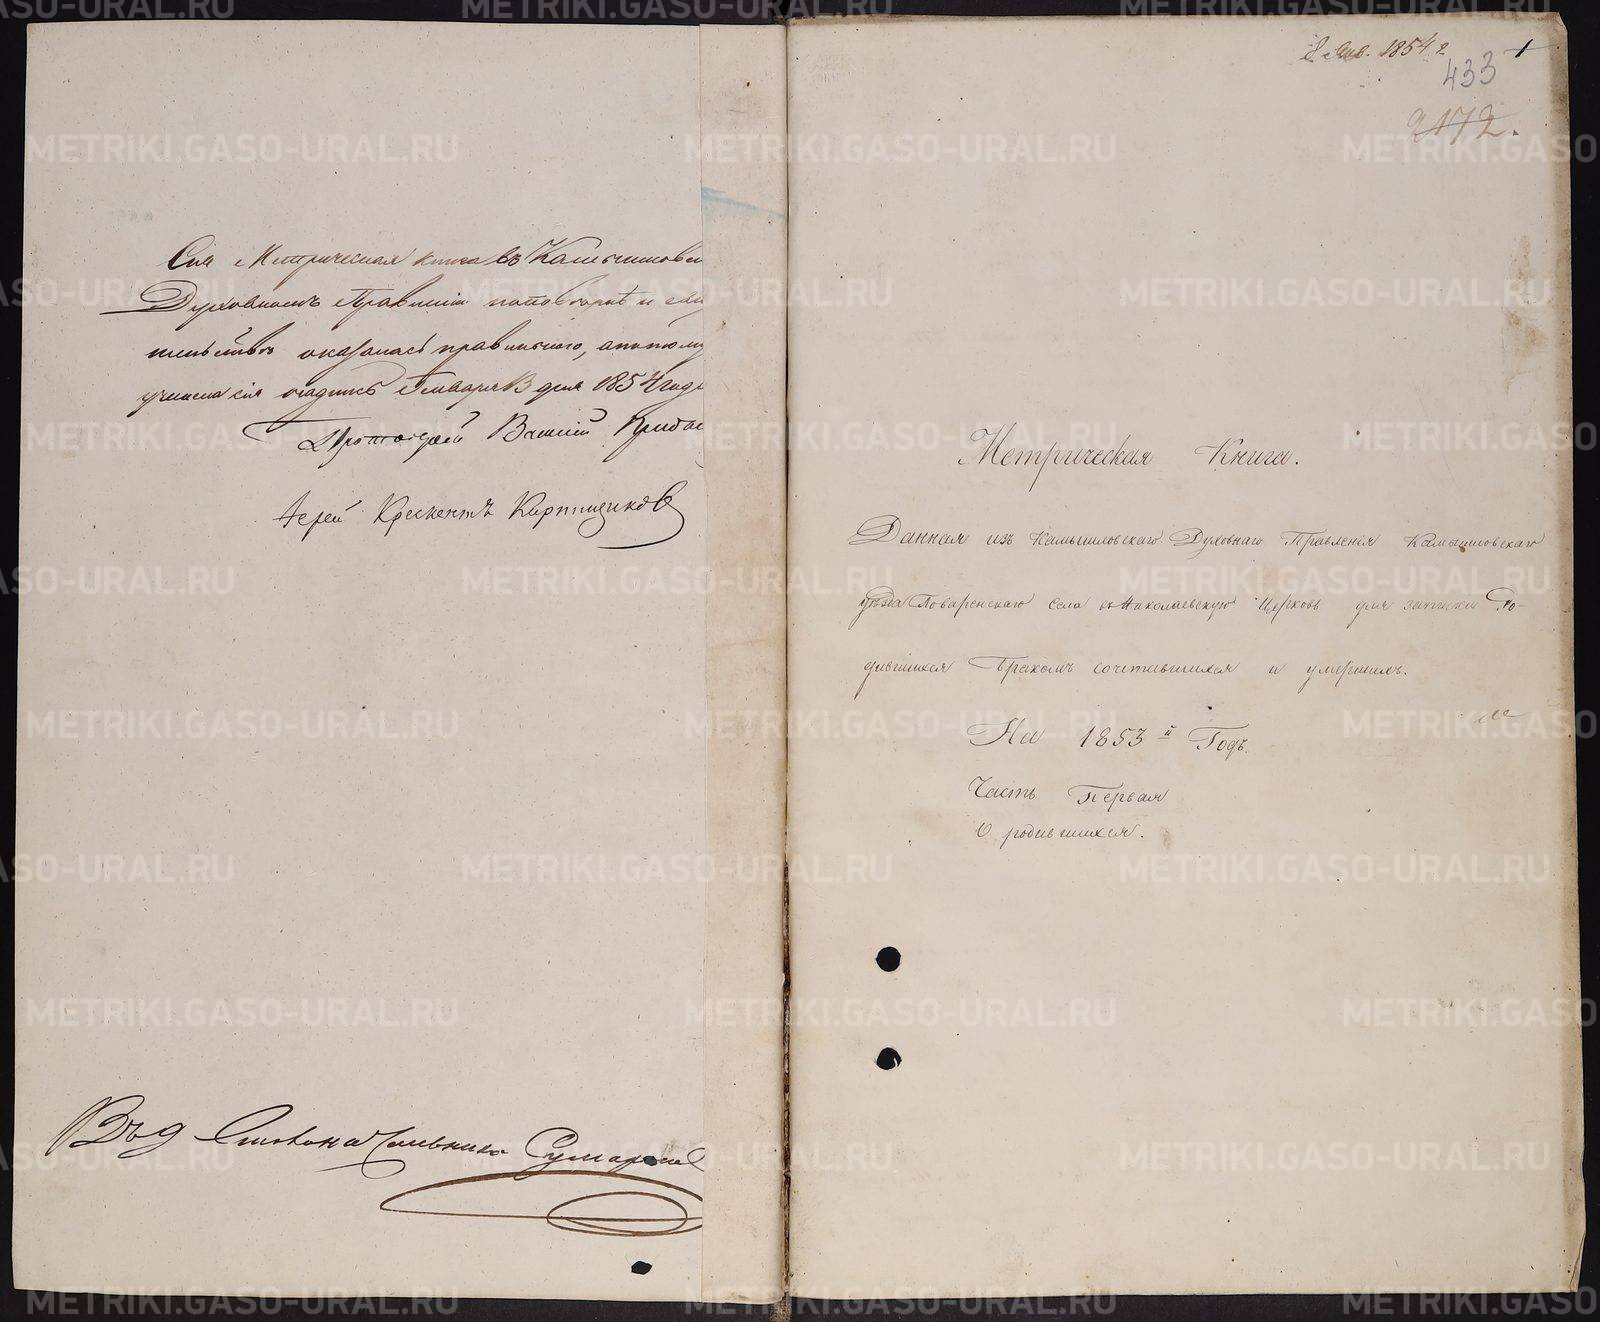 Сія Метрическая книга въ Камышловск
Духовномъ Правленіи по повѣркѣ и сви
тельству оказалась правильною, а потому
учинена сія надпись Генваря 13 дня 1854 года
Протоіерей Василій
Іерей Крескентъ Кирпищиковъ
Столоначальника
8 Янв. 1854 г
1
433
2172.
Метрическая Книга.
Данная изъ Камышловскаго Духовнаго Правленія Камышловскаго
уѣзда Поваренскаго села въ Николаевскую Церковь для записки Ро-
дившихся Бракомъ сочетавшихся и умершихъ.
На 1853й Годъ.
Часть Первая
О родившихся.
METRIKI.GASO-URAL.RU